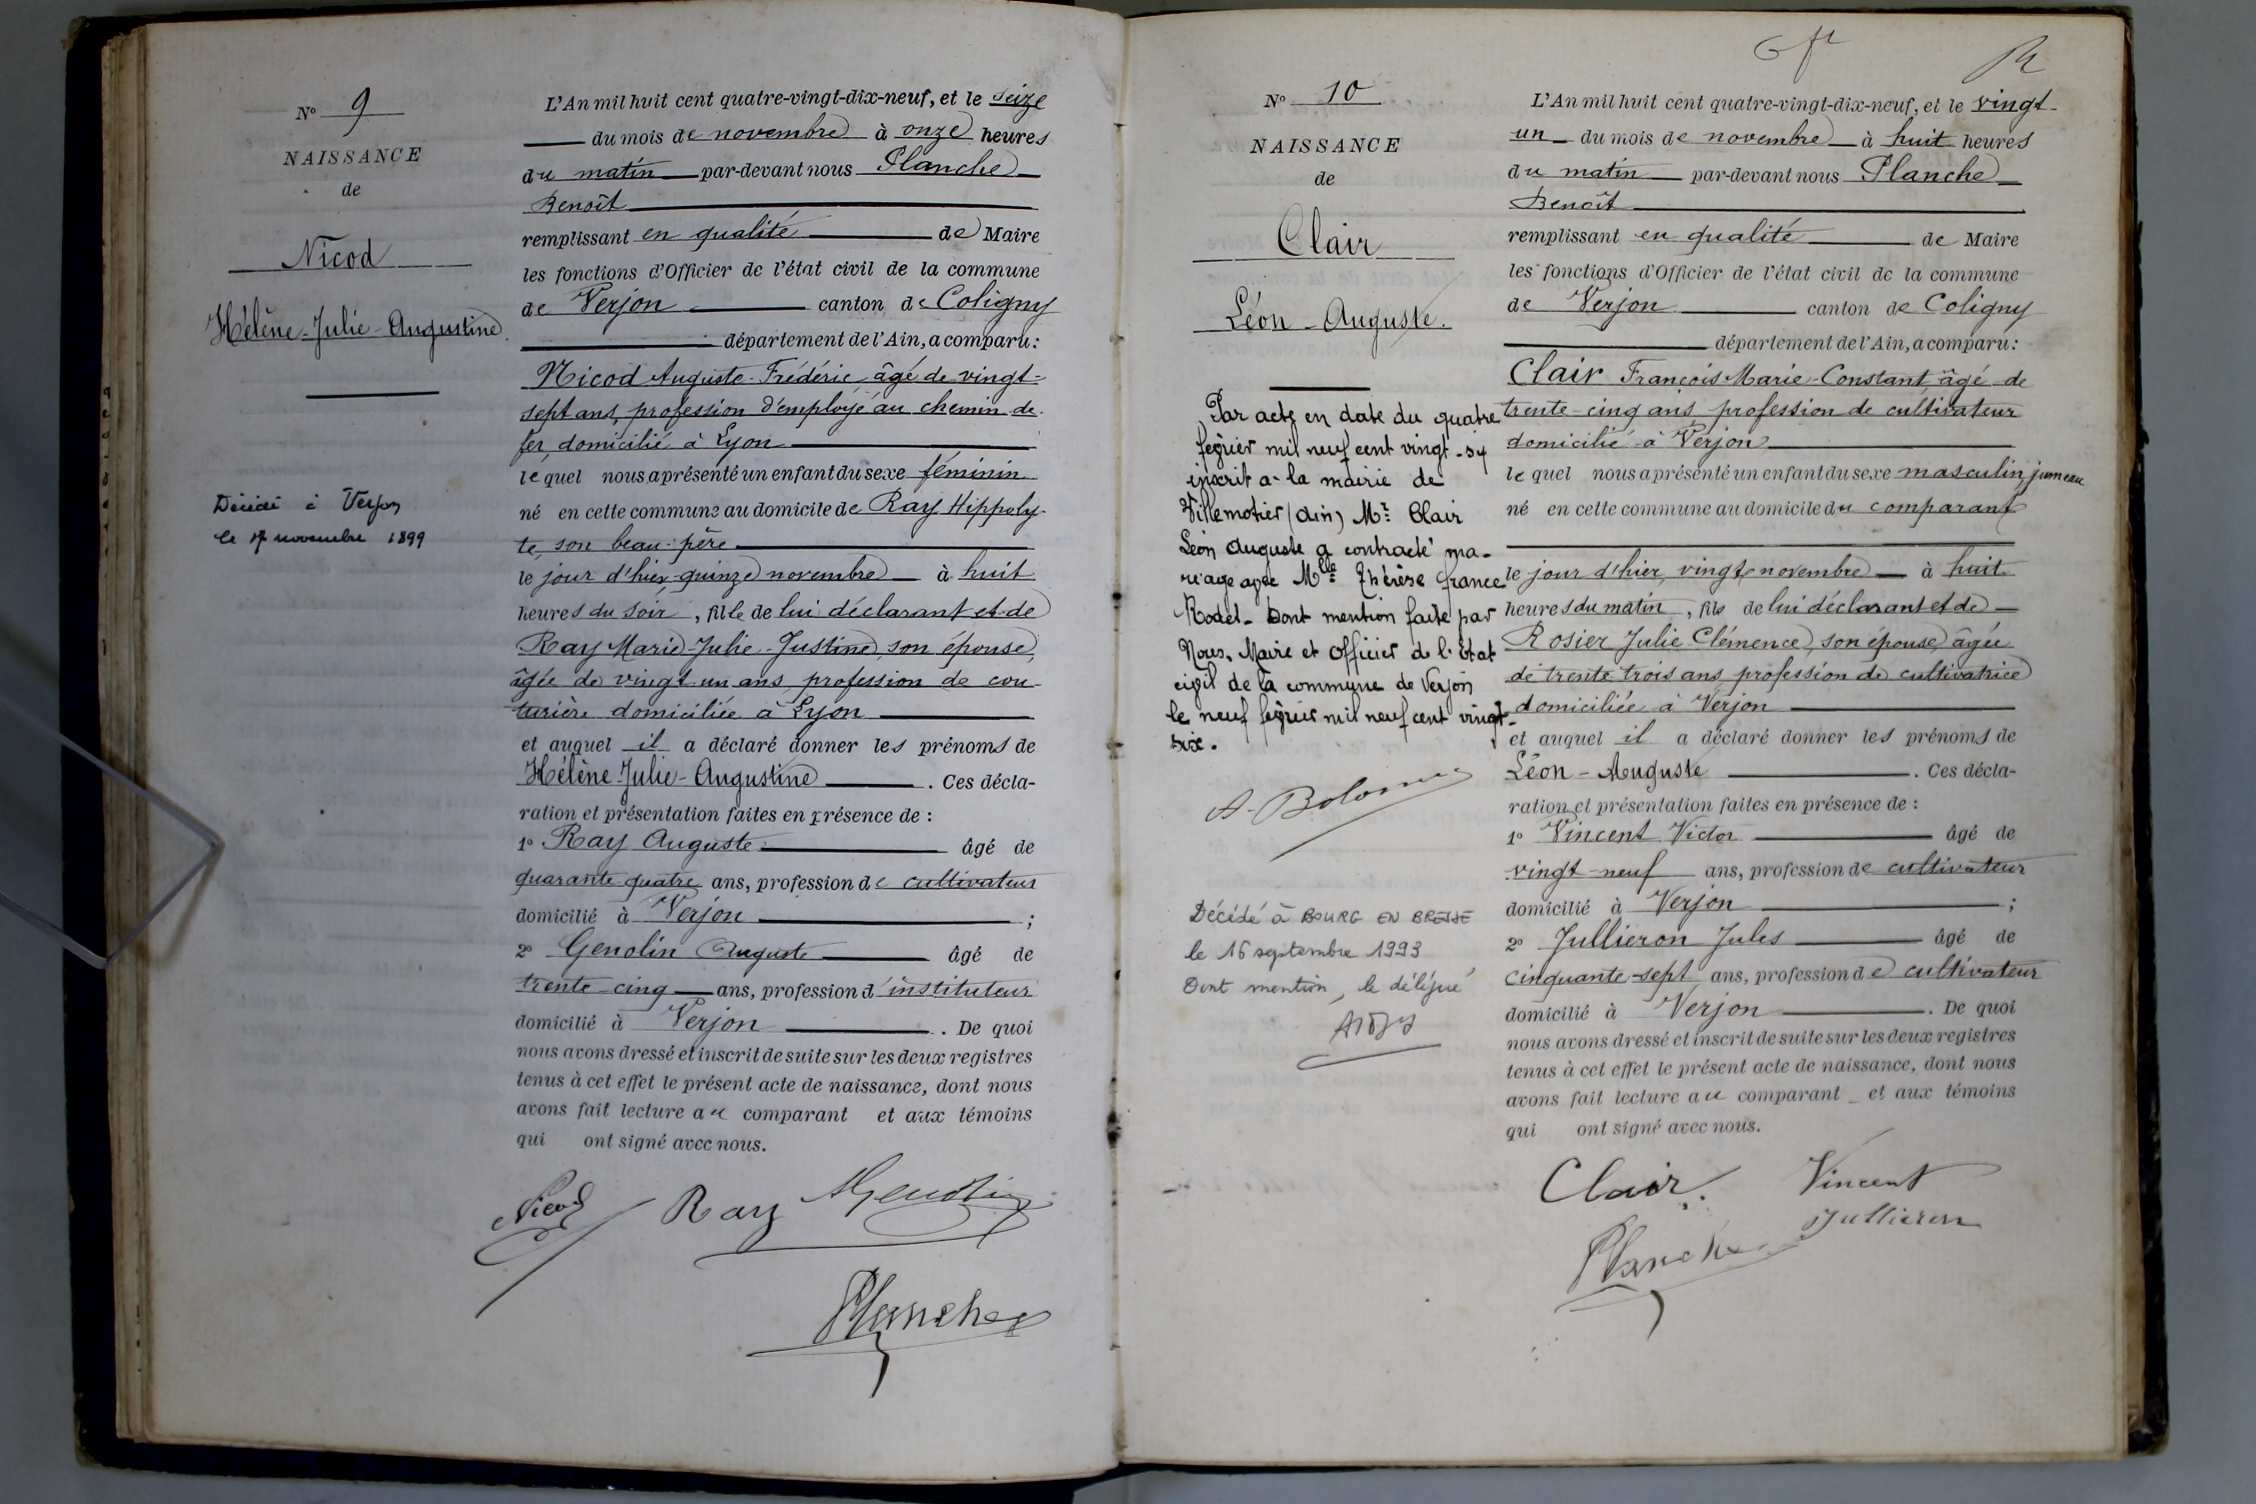 N° 9
NAISSANCE
de
Nicod
Hélène-Julie-Augustine
Décédé à Verjon
le 17 novembre 1899
L'An mil huit cent quatre-vingt-dix-neuf, et le seize
du mois de novembre à onze heures
du matin par-devant nous Planche
Benoît
remplissant en qualité de Maire
les fonctions d'Officier de l'état civil de la commune
de Verjon canton de Coligny
département de l'Ain, a comparu:
Nicod Auguste-Frédéric, âgé de vingt-
sept ans, profession d'employé au chemin de
fer, domicilié à Lyon
lequel nous a présenté un enfant du sexe féminin
né en cette commune au domicile de Ray Hippoly-
te, son beau-père
le jour d'hier quinze novembre à huit
heures du soir, fille de lui déclarant et de
Ray Marie-Julie-Justine, son épouse,
âgée de vingt un ans, profession de cou-
turière domiciliée à Lyon
et auquel il a déclaré donner les prénoms de
Hélène-Julie-Augustine. Ces décla-
ration et présentation faites en présence de :
1° Ray Auguste âgé de
quarante-quatre ans, profession de cultivateur
domicilié à Verjon ;
2° Genolin Auguste âgé de
trente-cinq ans, profession d'instituteur
domicilié à Verjon. De quoi
nous avons dressé et inscrit de suite sur les deux registres
tenus à cet effet le présent acte de naissance, dont nous
avons fait lecture au comparant et aux témoins
qui ont signé avec nous.
Nicod Ray AGenolin
Planche
N° 10
NAISSANCE
de
Clair
Léon-Auguste.
Par acte en date du quatre
février mil neuf cent vingt-six
inscrit à la mairie de
Villemotier (Ain) Mr Clair
Léon Auguste a contracté ma-
riage avec Mlle Thérèse France
Rodet. Dont mention faite par
Nous, Maire et Officier de l'état
civil de la commune de Verjon
le neuf février mil neuf cent vingt-
six.
Décédé à BOURG EN BRESSE
le 16 septembre 1993
Dont mention, le délégué
L'An mil huit cent quatre-vingt-dix-neuf, et le vingt-
un du mois de novembre à huit heures
du matin par-devant nous Planche
Benoît
remplissant en qualité de Maire
les fonctions d'Officier de l'état civil de la commune
de Verjon canton de Coligny
département de l'Ain, a comparu:
Clair François Marie-Constant, âgé de
trente-cinq ans profession de cultivateur
domicilié à Verjon
lequel nous a présenté un enfant du sexe masculin, jumeau
né en cette commune au domicile du comparant
le jour d'hier, vingt novembre à huit
heures du matin, fils de lui déclarant et de
Rosier Julie Clémence, son épouse, âgée
de trente trois ans, profession de cultivatrice
domiciliée à Verjon
et auquel il a déclaré donner les prénoms de
Léon-Auguste. Ces décla-
ration et présentation faites en présence de :
1° Vincent Victor âgé de
vingt-neuf ans, profession de cultivateur
domicilié à Verjon ;
2° Jullieron Jules âgé de
cinquante-sept ans, profession de cultivateur
domicilié à Verjon. De quoi
nous avons dressé et inscrit de suite sur les deux registres
tenus à cet effet le présent acte de naissance, dont nous
avons fait lecture au comparant et aux témoins
qui ont signé avec nous.
Clair. Vincent
Planche Jullieron